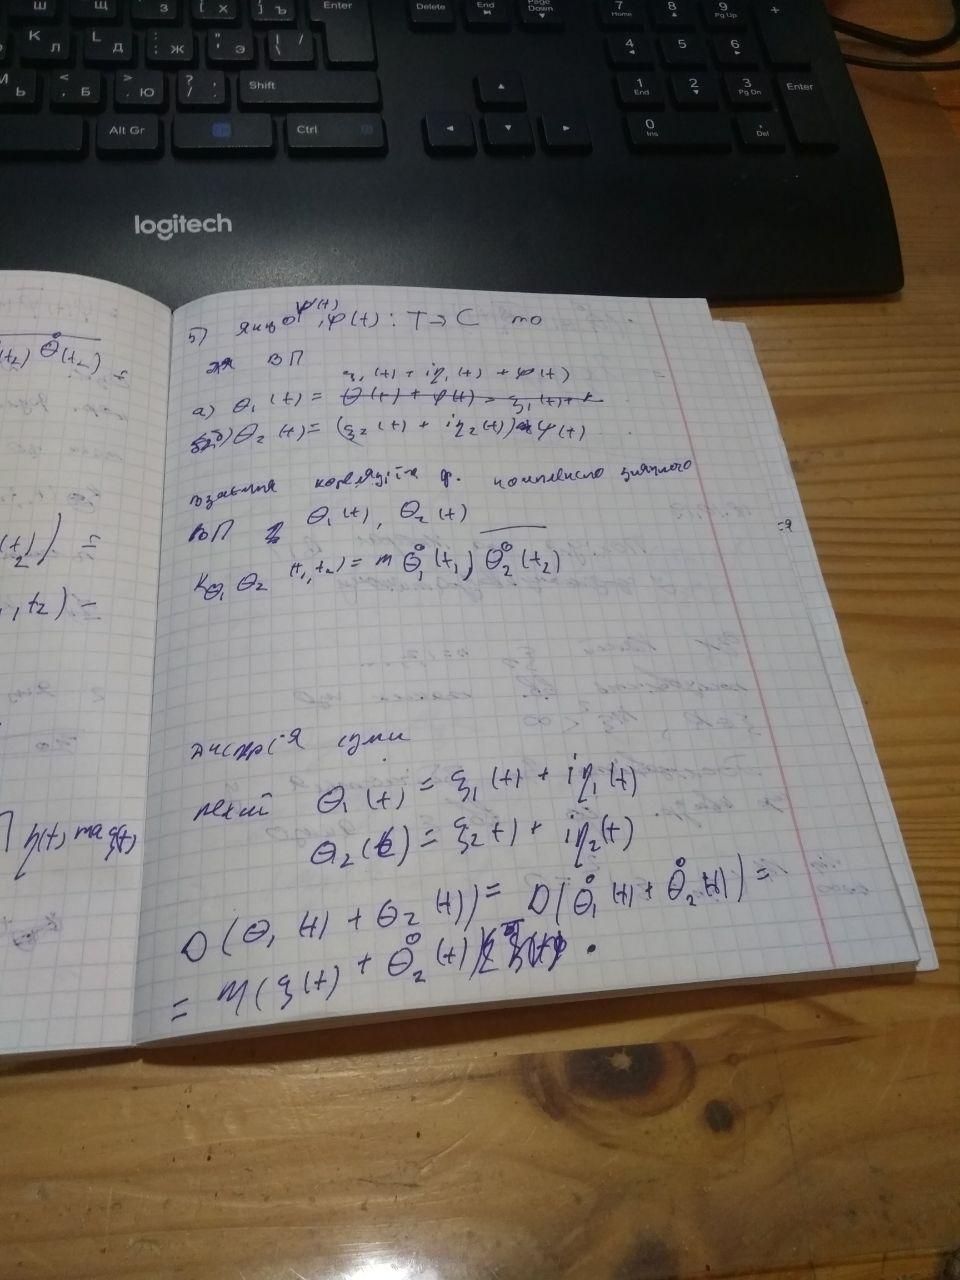 Ш
З
Х
Ъ
Enter
Delete
End
Page Down
7 Home
8
9 Pg Up
+
К Л
L Д
: ; Ж
" ' Э
| \ /
4
5
6
Ь
< , Б
> . Ю
? / .
Shift
1 End
2
3 Pg Dn
Enter
Alt Gr
Ctrl
0 Ins
. Del
logitech
5) якщо ψ(t), φ(t) : T → C то
для ВП
ξ₁(t) + iη₁(t) + φ(t)
а) θ₁(t) = θ(t) + φ(t) = ξ₁(t) +
б) θ₂(t) = (ξ₂(t) + iη₂(t)) ψ(t)
взаємна кореляція ф. комплексно значного
ВП з θ₁(t), θ₂(t)
K θ₁θ₂ (t₁, t₂) = m θ̊₁(t₁) \overline{θ̊₂(t₂)}
дисперсія суми
нехай θ₁(t) = ξ₁(t) + iη₁(t)
θ₂(t) = ξ₂(t) + iη₂(t)
D(θ₁(t) + θ₂(t)) = D(θ̊₁(t) + θ̊₂(t)) =
= m(ξ(t) + θ̊₂(t))
θ̊(t₂)
, t₂) =
η(t) та ξ(t)